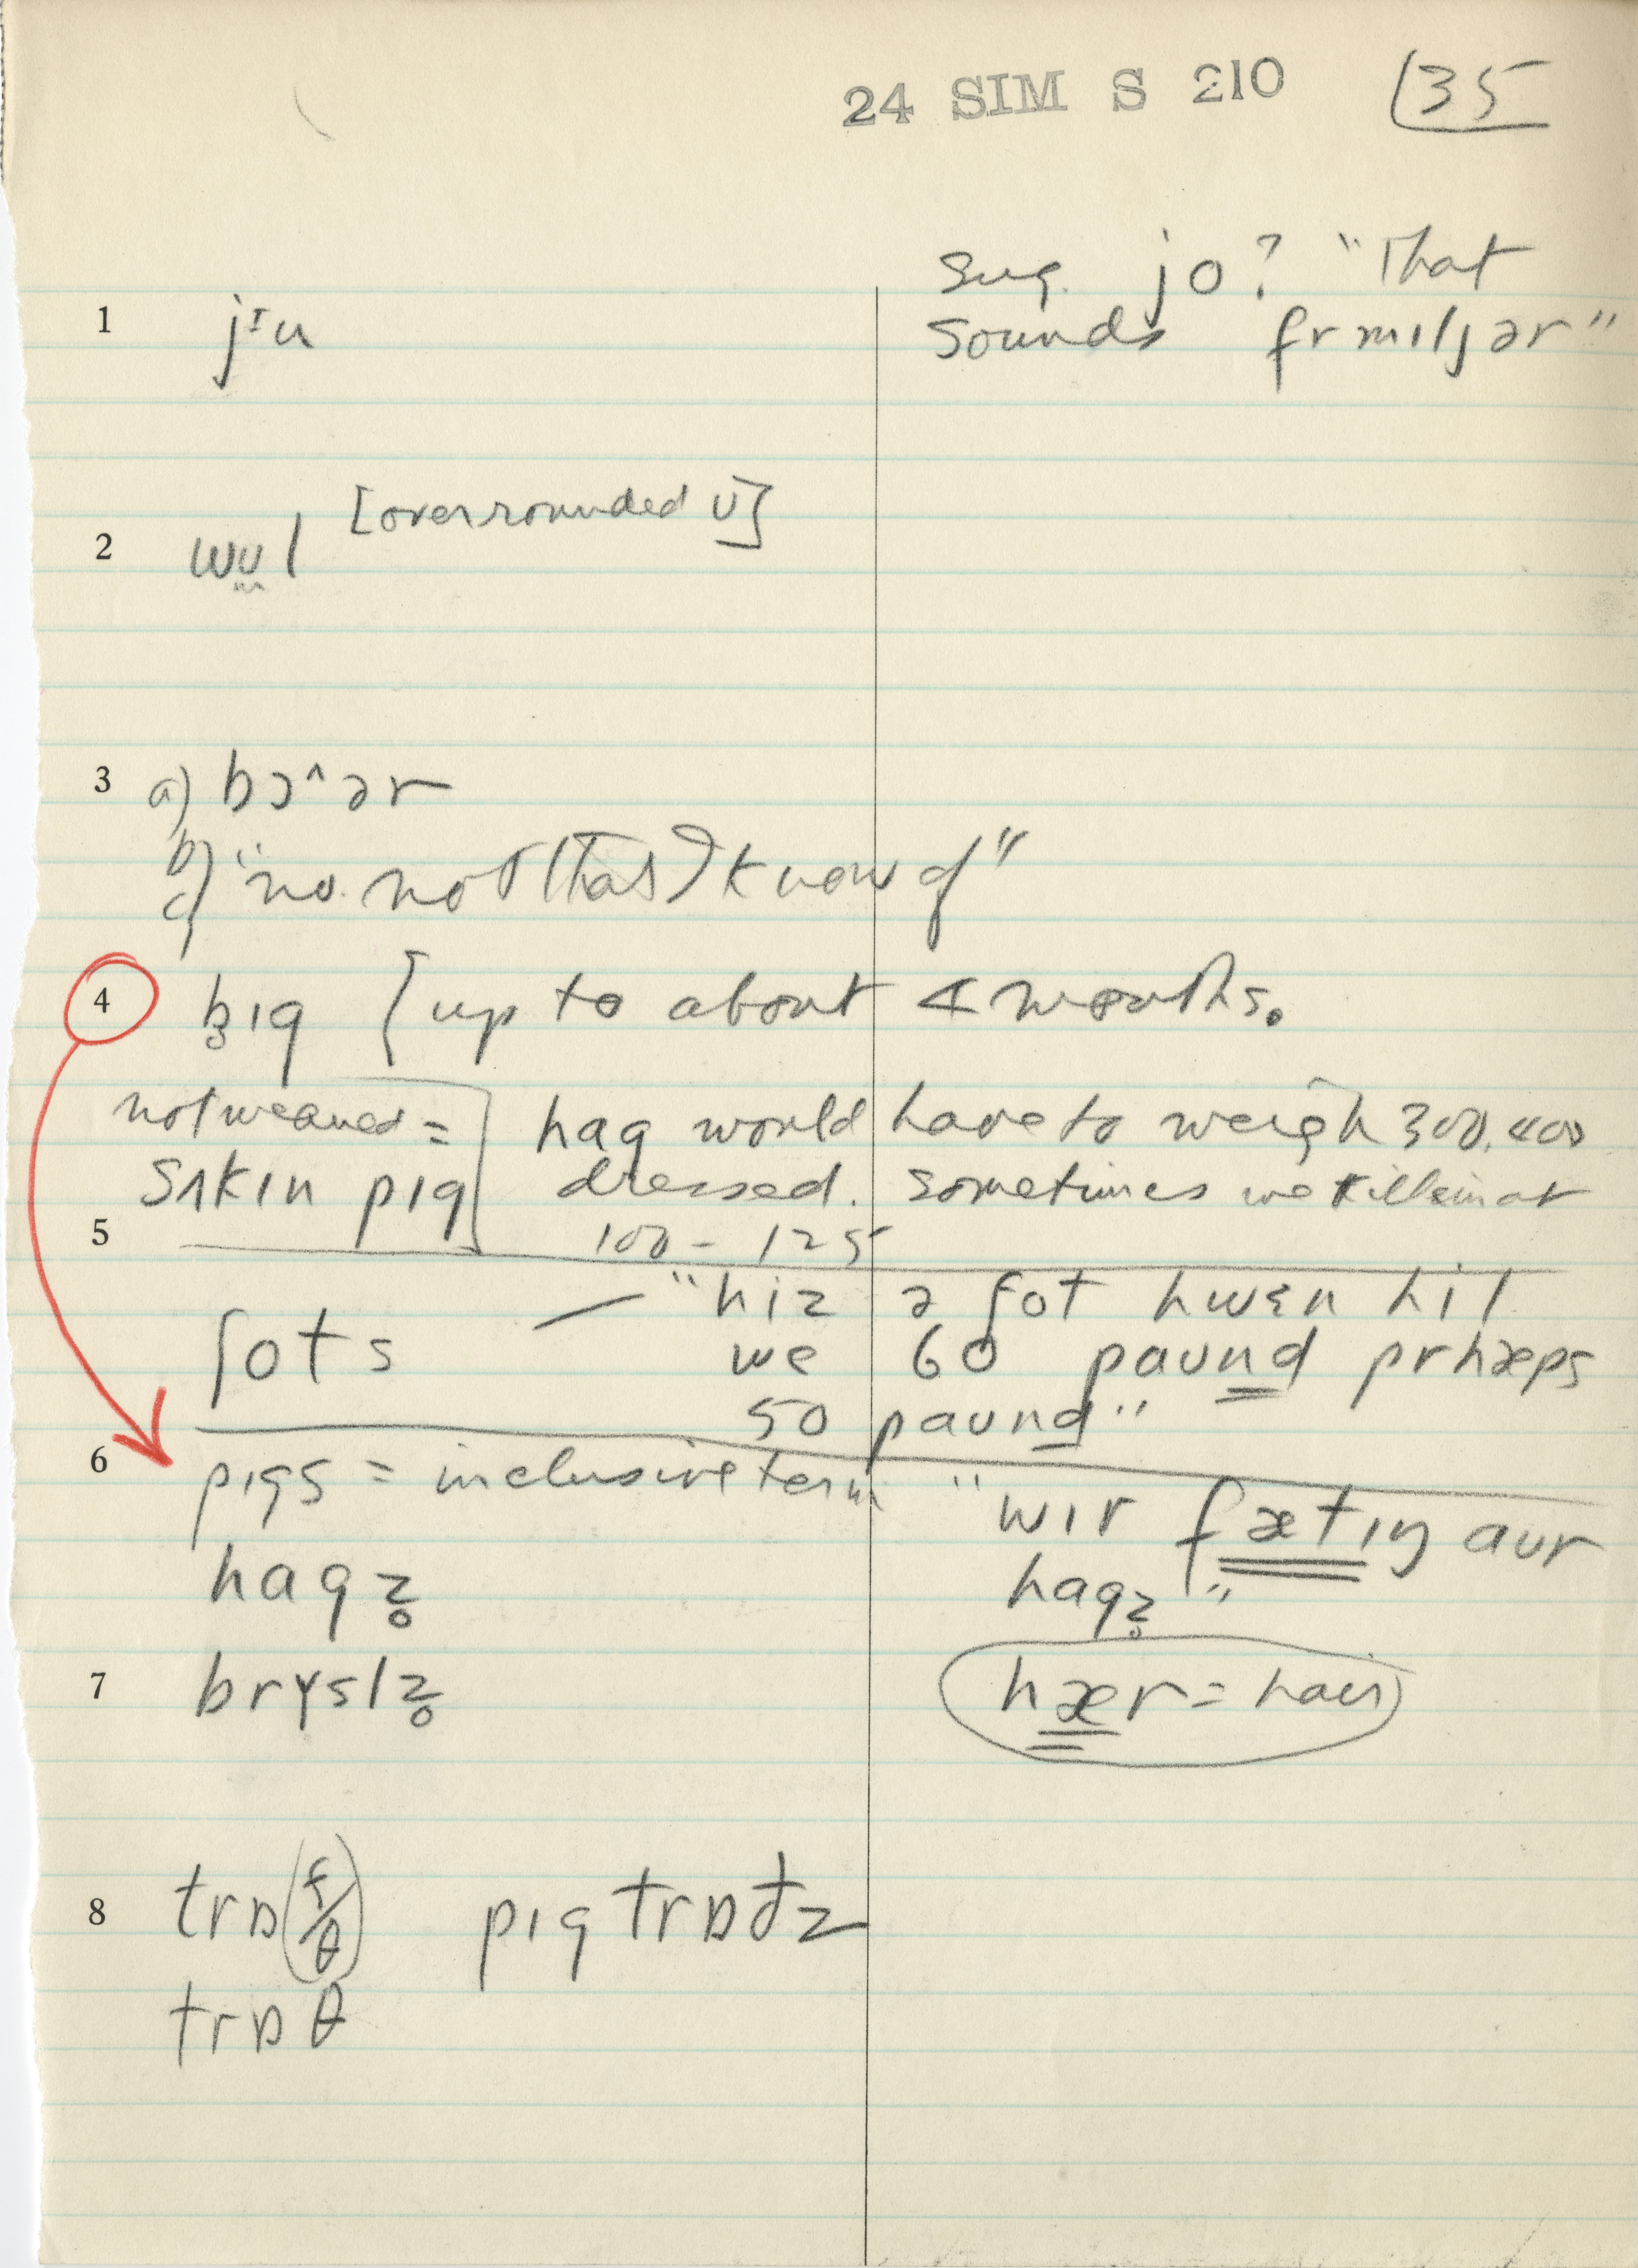 24 SIM S 210 35
Sug. jo? "That
1 jᶦu sounds frmɪljər"
[overrounded ʊ]
2 wʊl
3 a) bɔ^ər
b)
c) "no. not (that) I know of"
4 b̥ɪg [up to about 4 months.
not weaned = hag would have to weigh 300, 400
sʌkɪn pɪg] dressed. sometimes we kill em at
5 100 - 125
"hiz ə ʃot hwɛn hit
ʃots we 60 paʊnd prhæps
50 paʊnd"
6 pigs = inclusive term "wɪr fætɪŋ aʊr
hagz̥ hagz̥"
7 brysl̩z̥ hær = hair
8 trɒ(f/θ) pɪg trɒtz
trɒθ